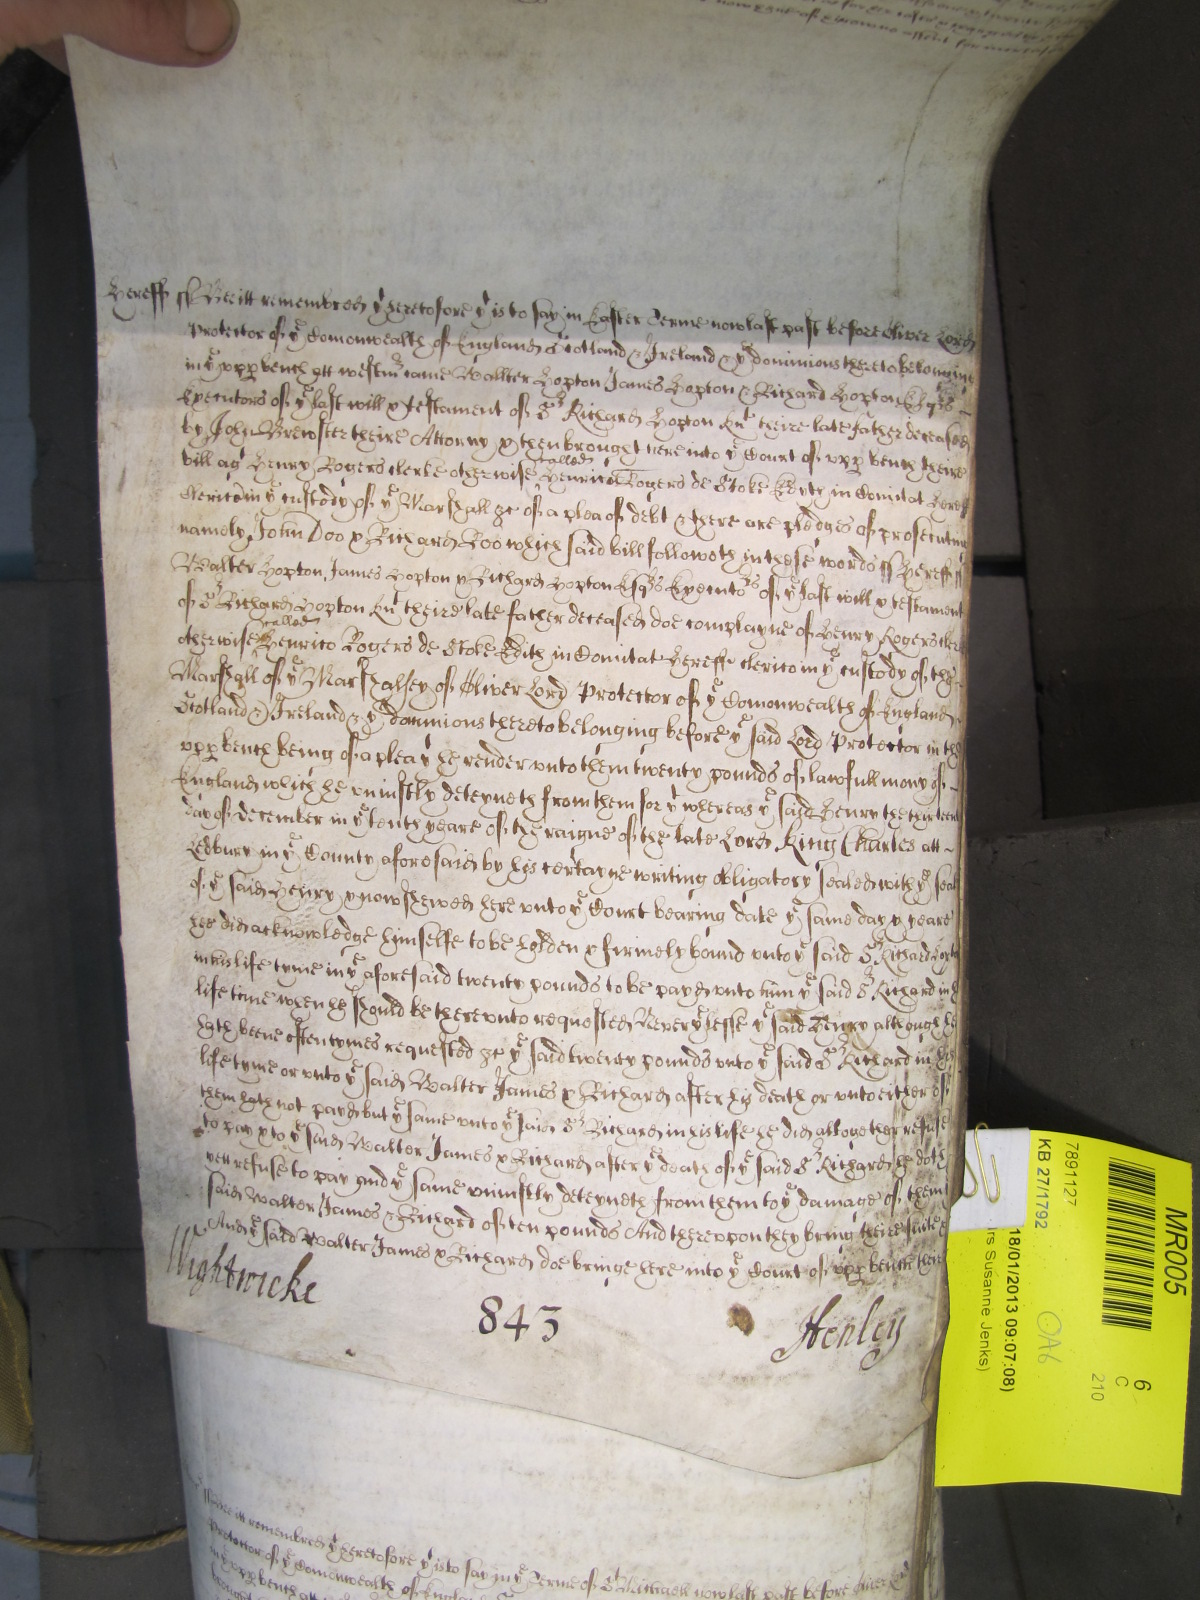 Hereff ss Bee itt remembred yt heretofore yt is to say in Easter Terme now last past before Oliver Lord
Protector of ye Comonwealth of England Scotland & Ireland & ye dominions thereto belonging
in ye upp bench att Westmr came Walter Hopton James Hopton & Richard Hopton Esqrs
Executors of ye last will & testament of Sr Richard Hopton Knt theire late father deceased
by John Brewster theire Attorny & then brought here into ye Court of upp bench theire
bill agt Henry Rogers clerke otherwise called Henrico Rogers de Stoke Edyth in Comitat Hereff
clerico in ye custody of ye Marshall &c of a plea of debt & there are pledges of prosecuting
namely John Doo & Richard Roo which said bill followeth in these words ss Hereff ss
Walter Hopton, James Hopton & Richard Hopton Esqrs Executors of ye last will & testament
of Sr Richard Hopton Knt theire late father deceased doe complayne of Henry Rogers clerk
otherwise called Henrico Rogers de Stoke Edith in Comitat Hereff clerico in ye custody of the
Marshall of ye Marshalsey of Oliver Lord Protector of ye Comonwealth of England
Scotland & Ireland & ye dominions thereto belonging before ye said Lord Protector in the
upp bench being of a plea yt he render unto them twenty pounds of lawfull mony of
England which he uniustly deteyneth from them for yt whereas ye said Henry the thirteenth
day of december in ye tenth yeare of the raigne of the late Lord King Charles att
Ledbury in ye County aforesaid by his certayne writing obligatory sealed with ye seale
of ye said Henry & now shewed here unto ye Court bearing date ye same day & yeare
he did acknowledge himselfe to be holden & firmely bound unto ye said Sr Richard Hopton
in his life tyme in ye aforesaid twenty pounds to be payd unto him ye said Sr Richard in his
life time when he should be thereunto requested Neverthelesse ye said Henry although he
hath beene oftentymes requested &c ye said twenty pounds unto ye said Sr Richard in his
life tyme or unto ye said Walter James & Richard after his death or unto either of
them hath not payd but ye same unto ye said Sr Richard in his life he did altogether refuse
to pay & to ye said Walter James & Richard after ye death of ye said Sr Richard he doth
yett refuse to pay and ye same uniustly deteyneth from them to ye damage of them ye
said Walter James & Richard of ten pounds And thereupon they bring theire suite &c
And ye said Walter James & Richard doe bringe here into ye Court of upp bench there
Wightwicke
843
Henley
Bee itt remembred yt heretofore yt is to say in ye Terme of St Michaell now last past before Oliver Lord
Protector of ye Comonwealth of England
in ye upp bench att
brought
MR005
6
C
210
7891127
KB 27/1792
OA6
18/01/2013 09:07:08)
rs Susanne Jenks)